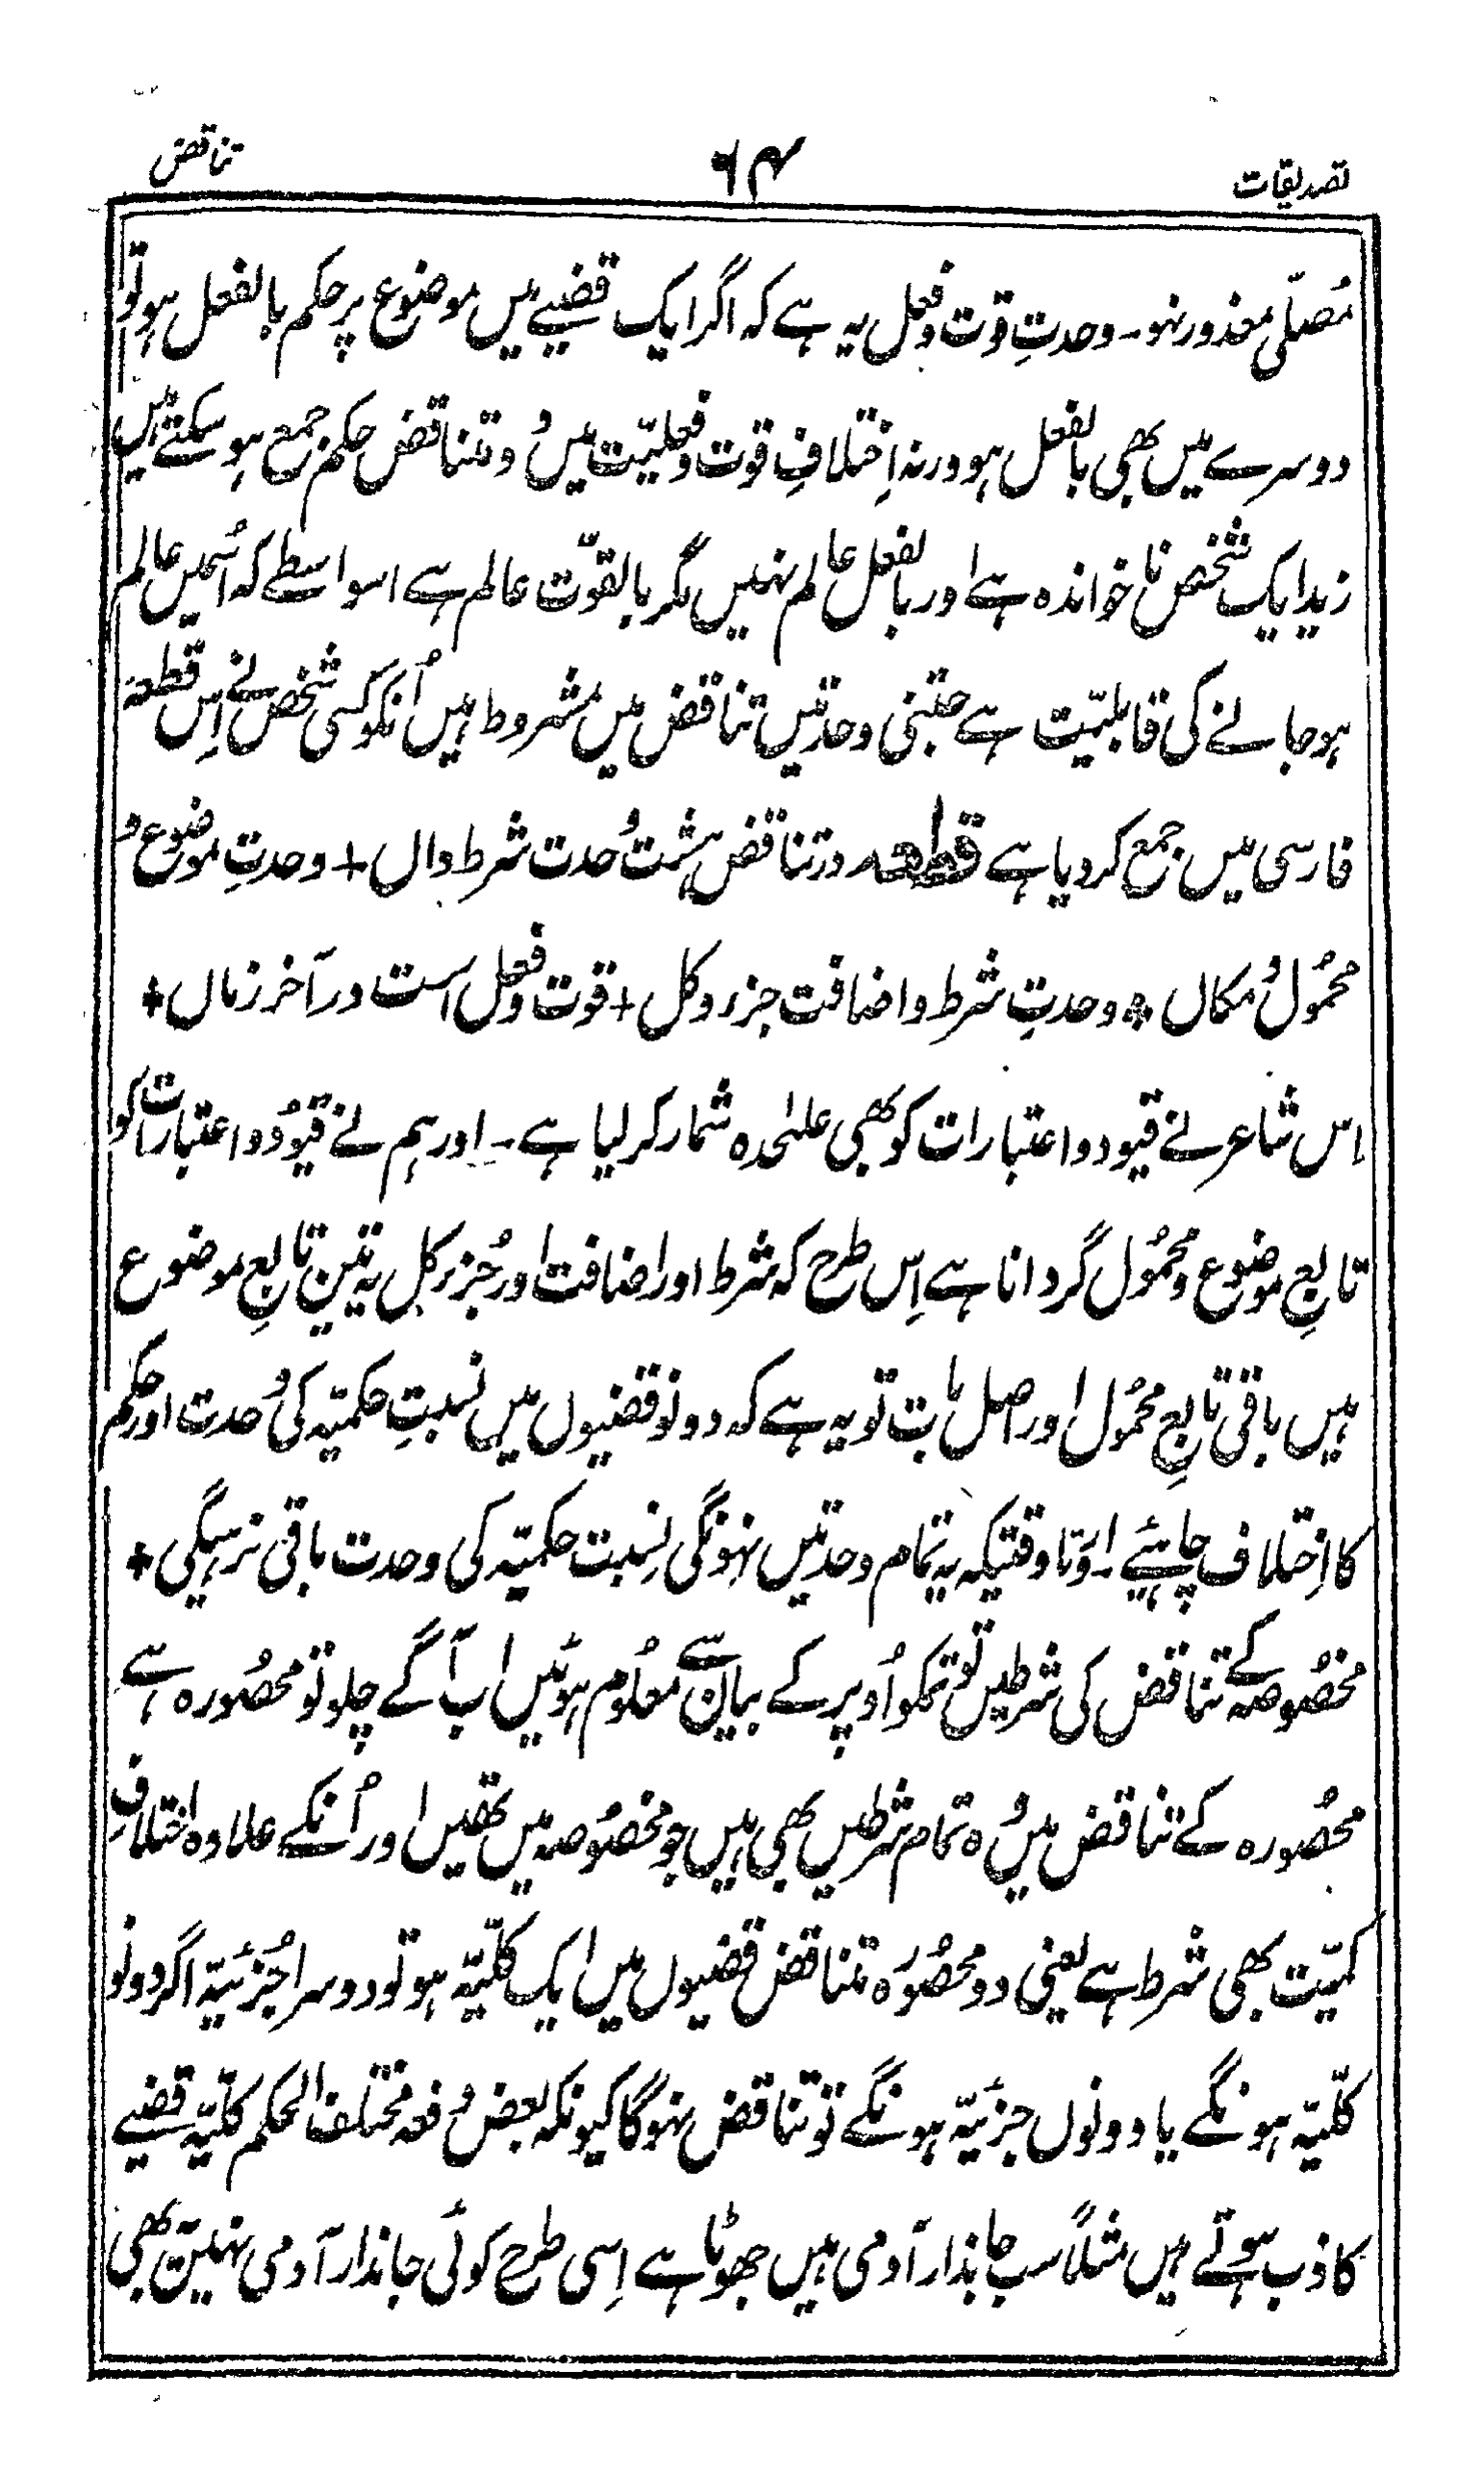 تصدیقات ۶۴ تناقض
مُصلّی معذور نہو۔ وحدتِ قوّت وفعل یہ ہے کہ اگر ایک قضیے میں موضوع پر حکم بالفعل ہو تو
دوسرے میں بھی بالفعل ہو ورنہ اِختلافِ قوت وفعلیّت میں دو متناقض حکم جمع ہو سکتے ہیں
زید ایک شخص ناخواندہ ہے اور بالفعل عالم نہیں مگر بالقوّت عالم ہے اسواسطے کہ اُسمیں عالم
ہو جانے کی قابلیّت ہے جتنی وحدتیں تناقض میں مشروط ہیں اُنکو کسی شخص نے اِس قطعہ
فارسی میں جمع کر دیا ہے قطعہ در تناقض ہشت وُحدت شرط داں + وحدتِ موضوع و
محمُول وُ مکاں + وحدتِ شرط و اضافت جزء و کل + قوت و فعل است در آخر زماں +
اِس شاعر نے قیود و اعتبارات کو بھی علیٰحدہ شمار کر لیا ہے۔ اور ہم نے قیوُد و اعتبارات کو
تابعِ موضوع و محمُول گردانا ہے اِس طرح کہ شرط اور اضافت اور جُزء کل یہ تین تابعِ موضوع
ہیں باقی تابعِ محمُول اور اصل بات تو یہ ہے کہ دونو قضیوں میں نسبتِ حکمیّہ کی وُحدت اور حکم
کا اِختلاف چاہئیے۔ اوَر تاوقتیکہ یہ تمام وحدتیں نہونگی نسبت حکمیّہ کی وحدت باقی نرہیگی +
مخصُوصہ کے تناقض کی شرطیں تو تمکو اُوپر کے بیان سے معلُوم ہوئیں اب آگے چلو تو محصُورہ ہے
محصُورہ کے تناقض میں وُہ تمام شرطیں بھی ہیں جو مخصُوصہ میں تھیں اور اُنکے علاوہ اختلافِ
کمیّت بھی شرط ہے یعنی دو محصُورَہ متناقض قضیوں میں ایک کلّیّہ ہو تو دوسرا جُزئیّہ اگر دونو
کلّیّہ ہونگے یا دونوں جزئیّہ ہونگے تو تناقض نہوگا کیونکہ بعض دُفعہ مختلف الحکم کلّیّہ قضیے
کاذب ہوتے ہیں مثلاً سب جاندار آدمی ہیں جھوٹا ہے اِسی طرح کوئی جاندار آدمی نہیں یہ بھی